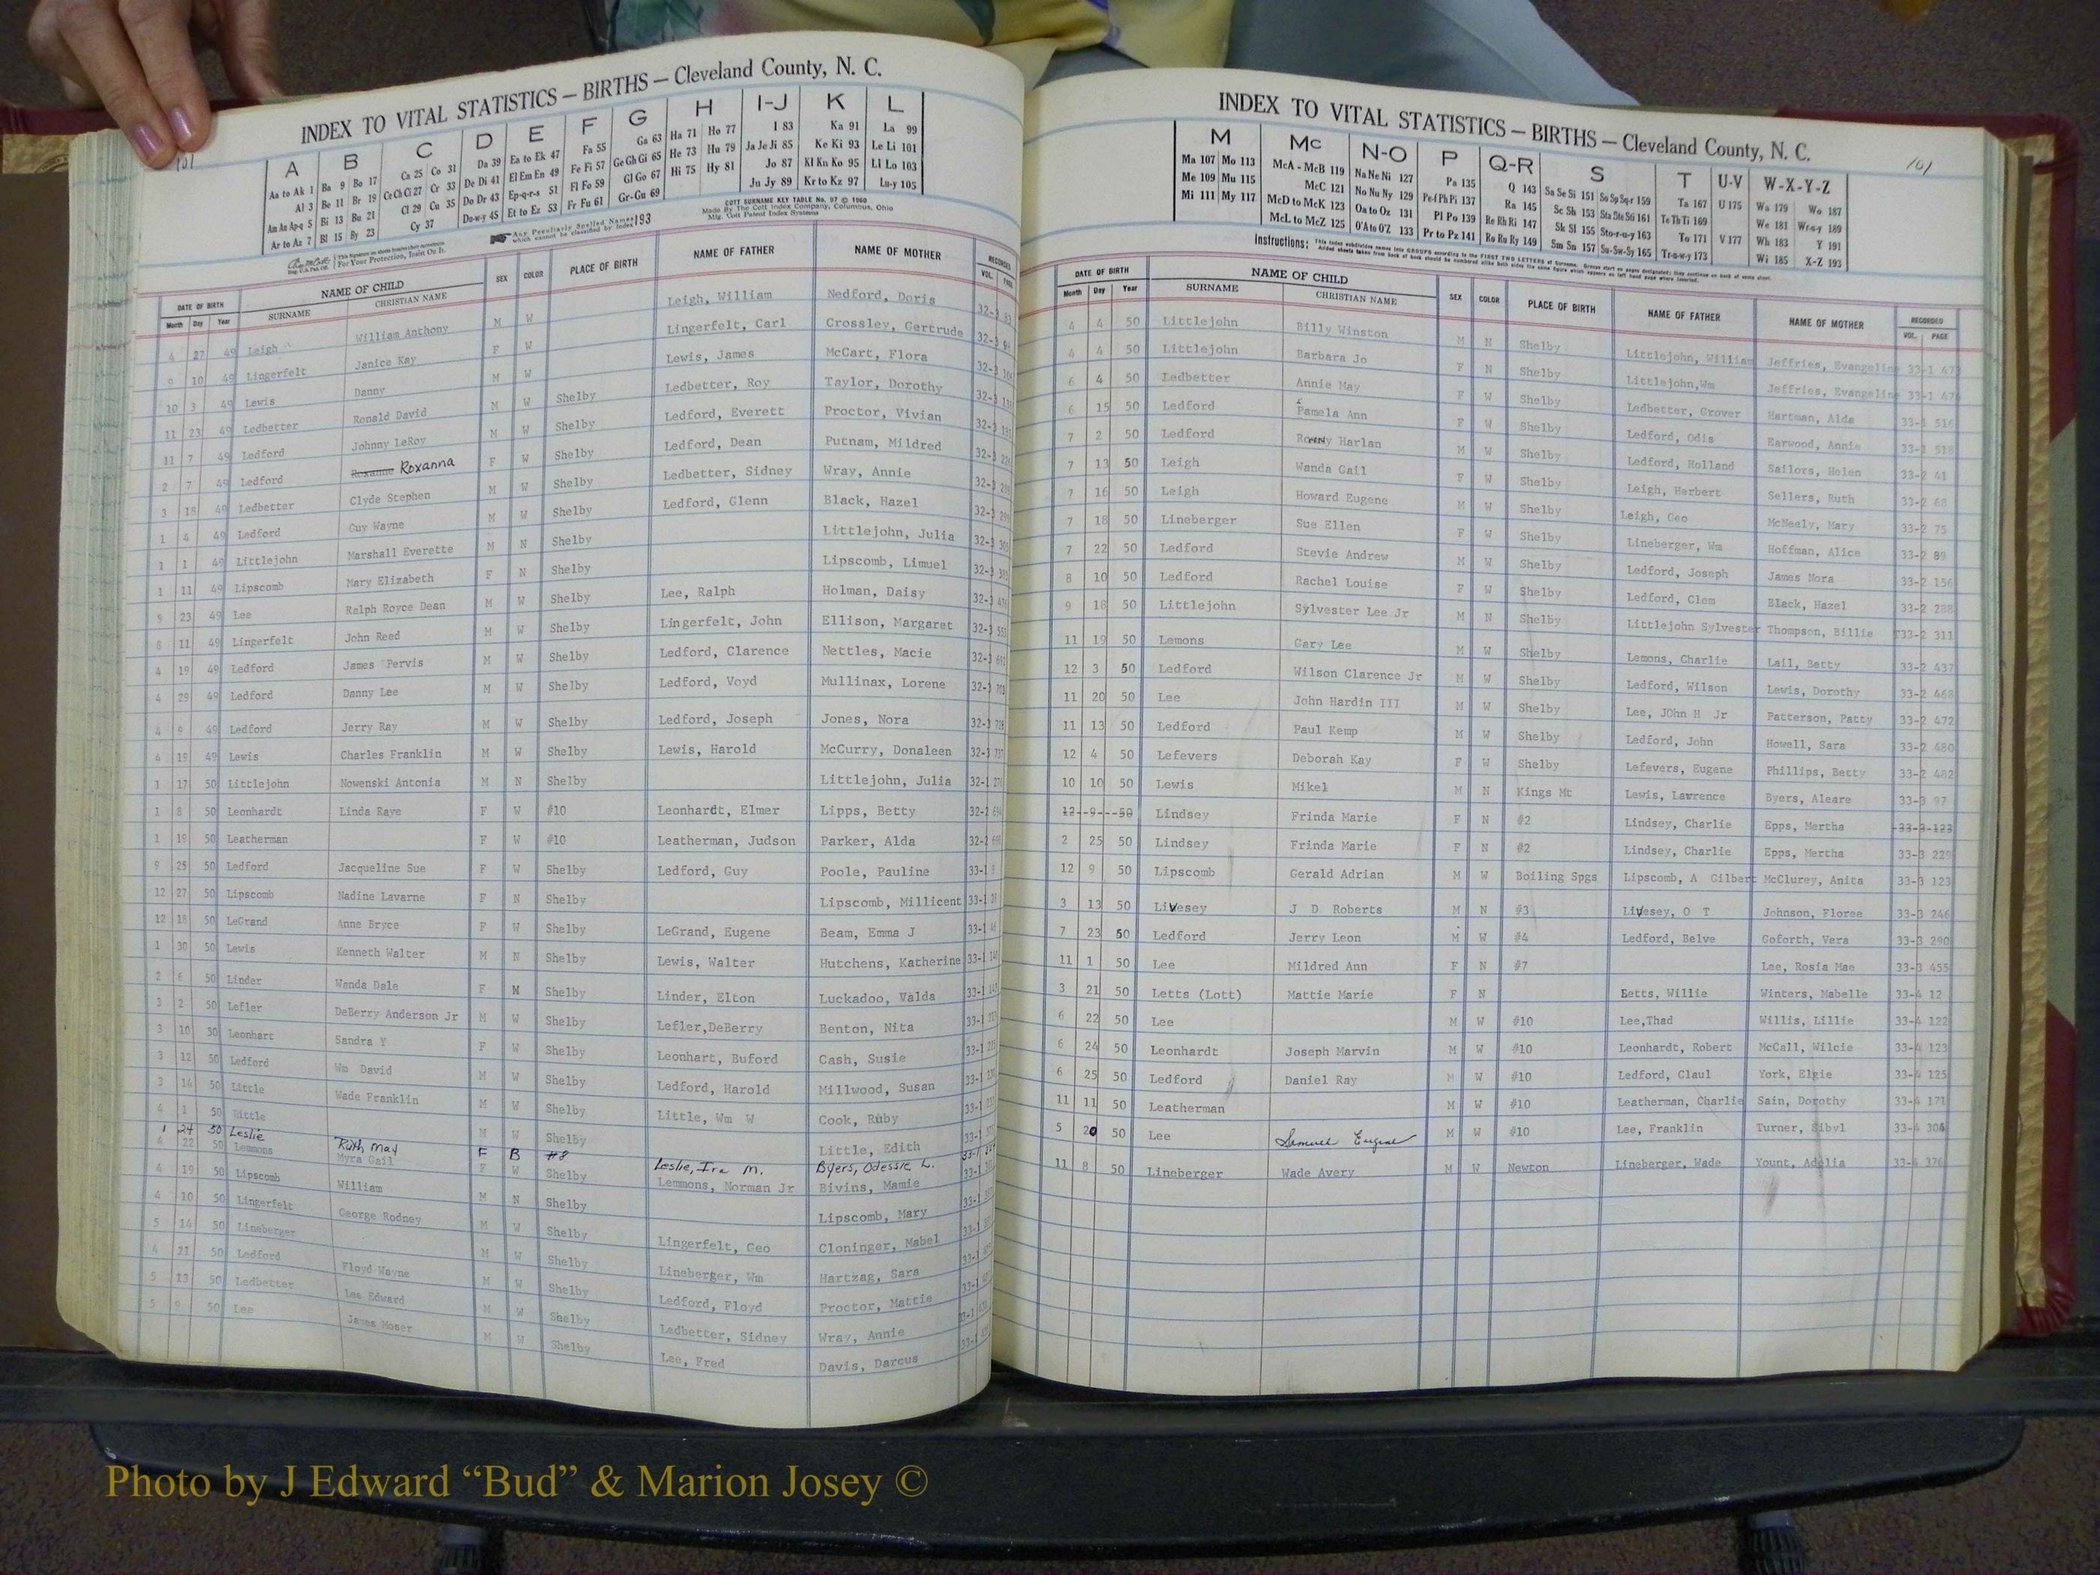 101
INDEX TO VITAL STATISTICS — BIRTHS — Cleveland County, N. C.
A B C D E F G H I-J K L
Aa to Ak 1 Ba 9 Bo 17 Ca 25 Co 31 Da 39 Ea to Ek 47 Fa 55 Ga 63 Ha 71 Ho 77 I 83 Ka 91 La 99
Al 3 Be 11 Br 19 Ce Ch Ci 27 Cr 33 De Di 41 El Em En 49 Fe Fi 57 Ge Gh Gi 65 He 73 Hu 79 Ja Je Ji 85 Ke Ki 93 Le Li 101
Am An Ap-q 5 Bi 13 Bu 21 Cl 29 Cu 35 Do Dr 43 Ep-q-r-s 51 Fl Fo 59 Gl Go 67 Hi 75 Hy 81 Jo 87 Kl Kn Ko 95 Ll Lo 103
Ar to Az 7 Bl 15 By 23 Cy 37 Du-w-y 45 Et to Ez 53 Fr Fu 61 Gr-Gu 69 Ju Jy 89 Kr to Kz 97 Lu-y 105
Any Peculiarly Spelled Names which cannot be classified by Index 193
COTT SURNAME KEY TABLE No. 97 © 1960
Made By The Cott Index Company, Columbus, Ohio
Mfg. Cott Patent Index Systems
For Your Protection, Insist On It.
DATE OF BIRTH NAME OF CHILD SEX COLOR PLACE OF BIRTH NAME OF FATHER NAME OF MOTHER RECORDED
Month Day Year SURNAME CHRISTIAN NAME VOL. PAGE
4 27 49 Leigh William Anthony M W Leigh, William Nedford, Doris 32-3
9 10 49 Lingerfelt Janice Kay F W Lingerfelt, Carl Crossley, Gertrude 32-3
10 3 49 Lewis Danny M W Lewis, James McCart, Flora 32-3
11 23 49 Ledbetter Ronald David M W Shelby Ledbetter, Roy Taylor, Dorothy 32-3
11 7 49 Ledford Johnny LeRoy M W Shelby Ledford, Everett Proctor, Vivian 32-3
2 7 49 Ledford Roxanne Roxanna F W Shelby Ledford, Dean Putnam, Mildred 32-3
3 18 49 Ledbetter Clyde Stephen M W Shelby Ledbetter, Sidney Wray, Annie 32-3
1 4 49 Ledford Guy Wayne M W Shelby Ledford, Glenn Black, Hazel 32-3
1 1 49 Littlejohn Marshall Everette M N Shelby Littlejohn, Julia 32-3
1 11 49 Lipscomb Mary Elizabeth F N Shelby Lipscomb, Limuel 32-3
23 49 Lee Ralph Royce Dean M W Shelby Lee, Ralph Holman, Daisy 32-3
11 49 Lingerfelt John Reed M W Shelby Lingerfelt, John Ellison, Margaret 32-3
4 19 49 Ledford James Pervis M W Shelby Ledford, Clarence Nettles, Macie 32-3
4 29 49 Ledford Danny Lee M W Shelby Ledford, Voyd Mullinax, Lorene 32-3
4 9 49 Ledford Jerry Ray M W Shelby Ledford, Joseph Jones, Nora 32-3
4 19 49 Lewis Charles Franklin M W Shelby Lewis, Harold McCurry, Donaleen 32-3
1 17 50 Littlejohn Nowenski Antonia M N Shelby Littlejohn, Julia 32-1
1 8 50 Leonhardt Linda Raye F W #10 Leonhardt, Elmer Lipps, Betty 32-2
1 19 50 Leatherman F W #10 Leatherman, Judson Parker, Alda 32-2
9 25 50 Ledford Jacqueline Sue F W Shelby Ledford, Guy Poole, Pauline 33-1
12 27 50 Lipscomb Nadine Lavarne F N Shelby Lipscomb, Millicent 33-1
12 18 50 LeGrand Anne Bryce F W Shelby LeGrand, Eugene Beam, Emma J 33-1
1 30 50 Lewis Kenneth Walter M N Shelby Lewis, Walter Hutchens, Katherine 33-1
2 6 50 Linder Wanda Dale F Shelby Linder, Elton Luckadoo, Valda 33-1
3 2 50 Lefler DeBerry Anderson Jr M W Shelby Lefler,DeBerry Benton, Nita 33-1
3 10 50 Leonhart Sandra Y F W Shelby Leonhart, Buford Cash, Susie 33-1
3 12 50 Ledford Wm David M W Shelby Ledford, Harold Millwood, Susan 33-1
3 14 50 Little Wade Franklin M W Shelby Little, Wm W Cook, Ruby 33-1
4 1 50 M W Shelby Little, Edith 33-1
1 24 50 Leslie Ruth May F B #8 Leslie, Ira M. Byers, Odessie L.
4 22 50 Lemmons Myra Gail F W Shelby Lemmons, Norman Jr Bivins, Mamie 33-1
4 19 50 Lipscomb William M N Shelby Lipscomb, Mary 33-1
4 10 50 Lingerfelt George Rodney M W Shelby Lingerfelt, Geo Cloninger, Mabel 33-1
5 14 50 Lineberger M W Shelby Lineberger, Wm Hartzag, Sara 33-1
4 21 50 Ledford Floyd Wayne M W Shelby Ledford, Floyd Proctor, Mattie 33-1
5 13 50 Ledbetter Lee Edward M W Shelby Ledbetter, Sidney Wray, Annie
5 9 50 Lee James Moser M W Shelby Lee, Fred Davis, Darcus
INDEX TO VITAL STATISTICS — BIRTHS — Cleveland County, N. C.
101
M Mc N-O P Q-R S T U-V W-X-Y-Z
Ma 107 Mo 113 McA - McB 119 Na Ne Ni 127 Pa 135 Q 143 Sa Se Si 151 So Sp Sq-r 159 Ta 167 U 175 Wa 179 Wo 187
Me 109 Mu 115 McC 121 No Nu Ny 129 Pe-f Ph Pi 137 Ra 145 Sc Sh 153 Sta Ste Sti 161 Te Th Ti 169 We 181 Wr-u-y 189
Mi 111 My 117 McD to McK 123 Oa to Oz 131 Pl Po 139 Re Rh Ri 147 Sk Sl 155 Sto-r-u-y 163 To 171 V 177 Wh 183 Y 191
McL to McZ 125 O'A to O'Z 133 Pr to Pz 141 Ro Ru Ry 149 Sm Sn 157 Su-Sw-Sy 165 Tr-u-w-y 173 Wi 185 X-Z 193
Instructions:
DATE OF BIRTH NAME OF CHILD SEX COLOR PLACE OF BIRTH NAME OF FATHER NAME OF MOTHER RECORDED
Month Day Year SURNAME CHRISTIAN NAME VOL. PAGE
4 4 50 Littlejohn Billy Winston M N Shelby Littlejohn, William Jeffries, Evangeline 33-1
4 4 50 Littlejohn Barbara Jo F N Shelby Littlejohn,Wm Jeffries, Evangeline 33-1
6 4 50 Ledbetter Annie May F W Shelby Ledbetter, Grover Hartman, Alda 33-1 516
6 15 50 Ledford Pamela Ann F W Shelby Ledford, Odis Earwood, Annie 33-1 518
7 2 50 Ledford Harlan M W Shelby Ledford, Holland Sailors, Helen 33-2 41
7 13 50 Leigh Wanda Gail F W Shelby Leigh, Herbert Sellers, Ruth 33-2 68
7 16 50 Leigh Howard Eugene M W Shelby Leigh, Geo McNeely, Mary 33-2 75
7 18 50 Lineberger Sue Ellen F W Shelby Lineberger, Wm Hoffman, Alice 33-2 89
7 22 50 Ledford Stevie Andrew M W Shelby Ledford, Joseph James Nora 33-2 156
8 10 50 Ledford Rachel Louise F W Shelby Ledford, Clem Black, Hazel 33-2 288
9 18 50 Littlejohn Sylvester Lee Jr M N Shelby Littlejohn Sylvester Thompson, Billie 33-2 311
11 19 50 Lemons Gary Lee M W Shelby Lemons, Charlie Lail, Betty 33-2 437
12 3 50 Ledford Wilson Clarence Jr M W Shelby Ledford, Wilson Lewis, Dorothy 33-2 468
11 20 50 Lee John Hardin III M W Shelby Lee, JOhn H Jr Patterson, Patty 33-2 472
11 13 50 Ledford Paul Kemp M W Shelby Ledford, John Howell, Sara 33-2 480
12 4 50 Lefevers Deborah Kay F W Shelby Lefevers, Eugene Phillips, Betty 33-2 482
10 10 50 Lewis Mikel M N Kings Mt Lewis, Lawrence Byers, Aleare 33-3 97
12--9---50 Lindsey Frinda Marie F N #2 Lindsey, Charlie Epps, Mertha -33-3-123
2 25 50 Lindsey Frinda Marie F N #2 Lindsey, Charlie Epps, Mertha 33-3 229
12 9 50 Lipscomb Gerald Adrian M W Boiling Spgs Lipscomb, A Gilbert McClurey, Anita 33-3 123
3 13 50 Livesey J D Roberts M N #3 Livesey, O T Johnson, Floree 33-3 246
7 23 50 Ledford Jerry Leon M W #4 Ledford, Belve Goforth, Vera 33-3 290
11 1 50 Lee Mildred Ann F N #7 Lee, Rosia Mae 33-3 455
3 21 50 Letts (Lott) Mattie Marie F N Letts, Willie Winters, Mabelle 33-4 12
6 22 50 Lee M W #10 Lee,Thad Willis, Lillie 33-4 122
6 24 50 Leonhardt Joseph Marvin M W #10 Leonhardt, Robert McCall, Wilcie 33-4 123
6 25 50 Ledford Daniel Ray M W #10 Ledford, Claul York, Elgie 33-4 125
11 11 50 Leatherman M W #10 Leatherman, Charlie Sain, Dorothy 33-4 171
5 20 50 Lee Samuel Eugene M W #10 Lee, Franklin Turner, Sibyl 33-4 304
11 8 50 Lineberger Wade Avery M W Newton Lineberger, Wade Yount, Adelia 33-4 376
Photo by J Edward “Bud” & Marion Josey ©